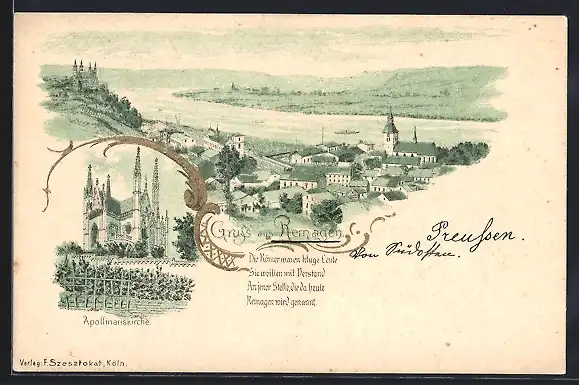 Gruss aus Remagen.
Preussen.
Von Südosten.
Die Römer waren kluge Leute
Sie weilten mit Verstand
An jener Stelle, die da heute
Remagen wird genannt.
Apollinariskirche.
Verlag: F. Szesztokat, Köln.